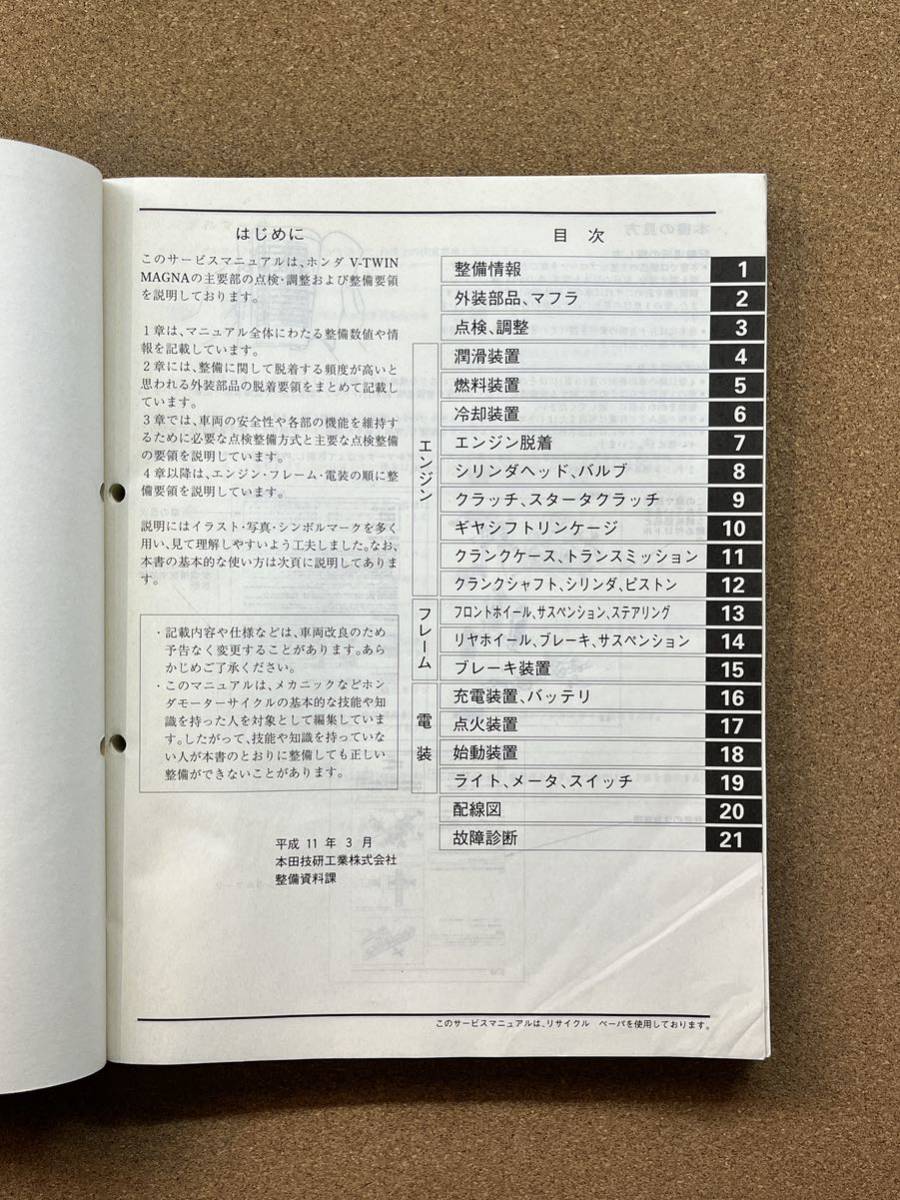 はじめに
このサービスマニュアルは、ホンダ V-TWIN
MAGNAの主要部の点検・調整および整備要領
を説明しております。
1章は、マニュアル全体にわたる整備数値や情
報を記載しています。
2章には、整備に関して脱着する頻度が高いと
思われる外装部品の脱着要領をまとめて記載し
ています。
3章では、車両の安全性や各部の機能を維持す
るために必要な点検整備方式と主要な点検整備
の要領を説明しています。
4章以降は、エンジン・フレーム・電装の順に整
備要領を説明しています。
説明にはイラスト・写真・シンボルマークを多く
用い、見て理解しやすいよう工夫しました。なお、
本書の基本的な使い方は次頁に説明してありま
す。
・記載内容や仕様などは、車両改良のため
予告なく変更することがあります。あら
かじめご了承ください。
・このマニュアルは、メカニックなどホン
ダモーターサイクルの基本的な技能や知
識を持った人を対象として編集していま
す。したがって、技能や知識を持っていな
い人が本書のとおりに整備しても正しい
整備ができないことがあります。
平成 11 年 3 月
本田技研工業株式会社
整備資料課
目 次
整備情報 1
外装部品、マフラ 2
点検、調整 3
エンジン
潤滑装置 4
燃料装置 5
冷却装置 6
エンジン脱着 7
シリンダヘッド、バルブ 8
クラッチ、スタータクラッチ 9
ギヤシフトリンケージ 10
クランクケース、トランスミッション 11
クランクシャフト、シリンダ、ピストン 12
フレーム
フロントホイール、サスペンション、ステアリング 13
リヤホイール、ブレーキ、サスペンション 14
ブレーキ装置 15
電装
充電装置、バッテリ 16
点火装置 17
始動装置 18
ライト、メータ、スイッチ 19
配線図 20
故障診断 21
このサービスマニュアルは、リサイクル ペーパを使用しております。